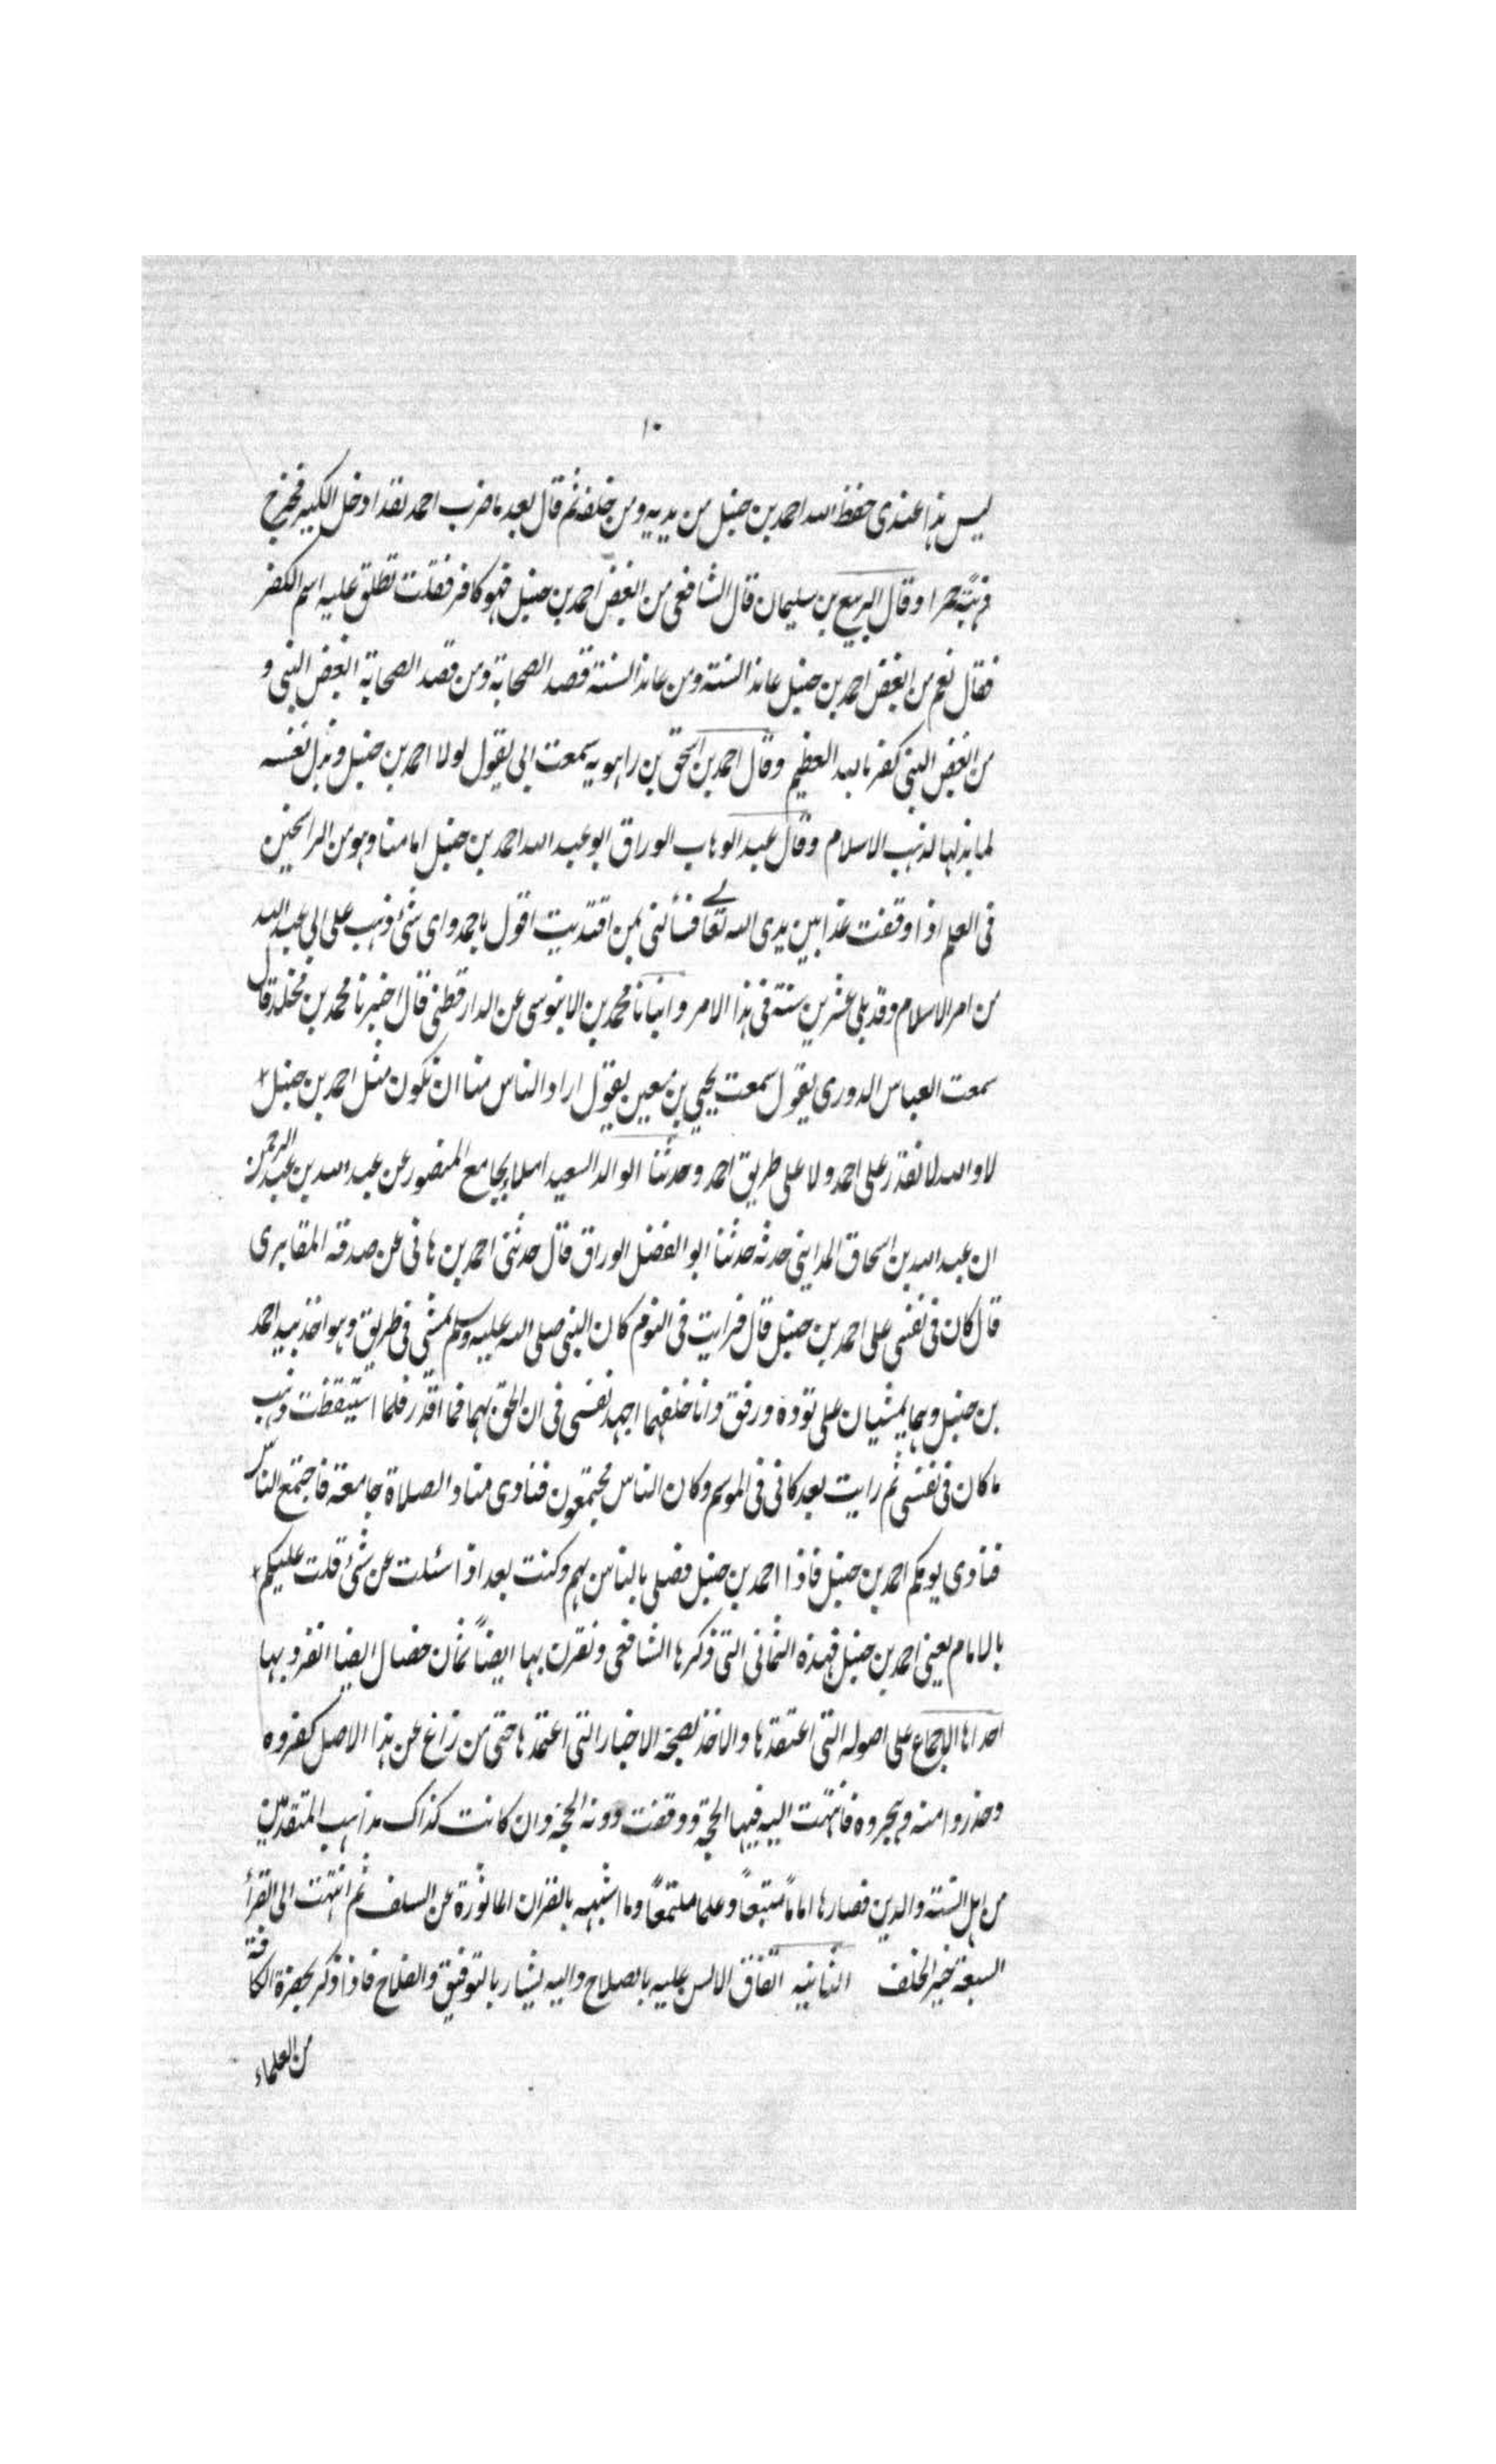 ١٠
ليس هذا عندى حفظ الله احمد بن حنبل من بين يديه ومن خلفه ثم قال بعد ما ضرب احمد لقد ادخل الكير فخرج
ذهبة حمرا وقال الربيع بن سليمان قال الشافعى من ابغض احمد بن حنبل فهو كافر فقلت تطلق عليه اسم الكفر
فقال نعم من ابغض احمد بن حنبل عاند السنة ومن عاند السنة قصد الصحابة ومن قصد الصحابة ابغض النبى و
من ابغض النبى كفر بالله العظيم وقال احمد بن اسحق بن راهويه سمعت ابى يقول لولا احمد بن حنبل وبذل نفسه
لما بذلها لذهب الاسلام وقال عبد الوهاب الوراق ابو عبد الله احمد بن حنبل امامنا وهو من الراسخين
فى العلم اذا وقفت غدا بين يدى الله تعالى فسألنى بمن اقتديت اقول باحمد واى شىء ذهب على ابى عبد الله
من امر الاسلام وقد بلى عشرين سنة فى هذا الامر وانبانا محمد بن الابنوسى عن الدارقطنى قال اخبرنا محمد بن مخلد قال
سمعت العباس الدورى يقول سمعت يحيى بن معين يقول اراد الناس منا ان نكون مثل احمد بن حنبل
لا والله لا نقدر على احمد ولا على طريق احمد وحدثنا الوالد السعيد املاء بجامع المنصور عن عبد الله بن عبد الرحمن
ان عبد الله بن اسحاق المداينى حدثه حدثنا ابو الفضل الوراق قال حدثنى احمد بن هانى عن صدقه المقابرى
قال كان فى نفسى على احمد بن حنبل قال فرايت فى النوم كان النبى صلى الله عليه وسلم يمشى فى طريق وهو اخذ بيد احمد
بن حنبل وهما يمشيان على تؤدة ورفق وانا خلفهما اجهد نفسى فى ان الحق بهما فما اقدر فلما استيقظت ذهب
ما كان فى نفسى ثم رايت بعد كانى فى الموسم وكان الناس مجتمعون فنادى مناد الصلاة جامعة فاجتمع الناس
فنادى يومكم احمد بن حنبل فاذا احمد بن حنبل فصلى بالناس بهم وكنت بعد اذا سئلت عن شىء قلت عليكم
بالامام يعنى احمد بن حنبل فهذه الثمانى التى ذكرها الشافعى ونقرن بها ايضاً ثمان خصال ايضا انفرد بها
احداها الاجماع على اصوله التى اعتقدها والاخذ لصحة الاخبار التى اعتمدها حتى من زاغ عن هذا الاصل كفروه
وحذروا منه وهجروه فانتهت اليه فيها الحجة ووقفت دونه الحجة وان كانت كذاك مذاهب المتقدمين
من اهل السنة والدين فصار اماماً متبعاً وعلما ملتمعاً وما اشبهه بالقران الماثورة عن السلف ثم انتهت الى القرأ
السبعة خير الخلف الثانيه اتفاق الالسن عليه بالصلاح واليه يشار بالتوفيق والفلاح فاذا ذكر بحضرة الكافة
من العلماء